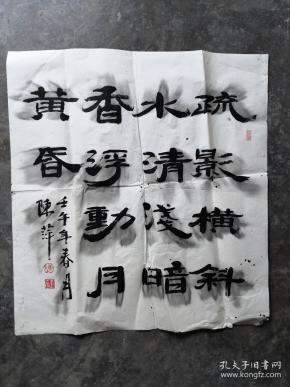 疏影橫斜
水清淺暗
香浮動月
黄昏
壬午年春月
陳萍
孔夫子旧书网